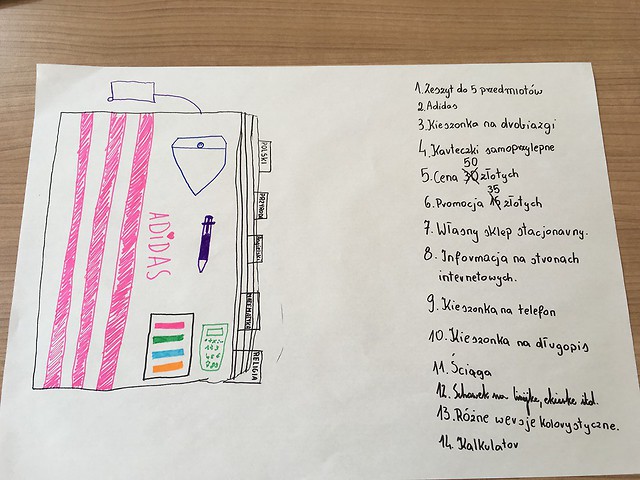 ADIDAS
POLSKI
RELIGIA
1. Zeszyt do 5 przedmiotów
2. Adidas
3. Kieszonka na drobiazgi
4. Karteczki samoprzylepne
50
5. Cena 30 złotych
35
6. Promocja 15 złotych
7. Własny sklep stacjonarny.
8. Informacja na stronach
internetowych.
9. Kieszonka na telefon
10. Kieszonka na długopis
11. Ściąga
12. Schowek na linijkę, ekierkę itd.
13. Różne wersje kolorystyczne.
14. Kalkulator